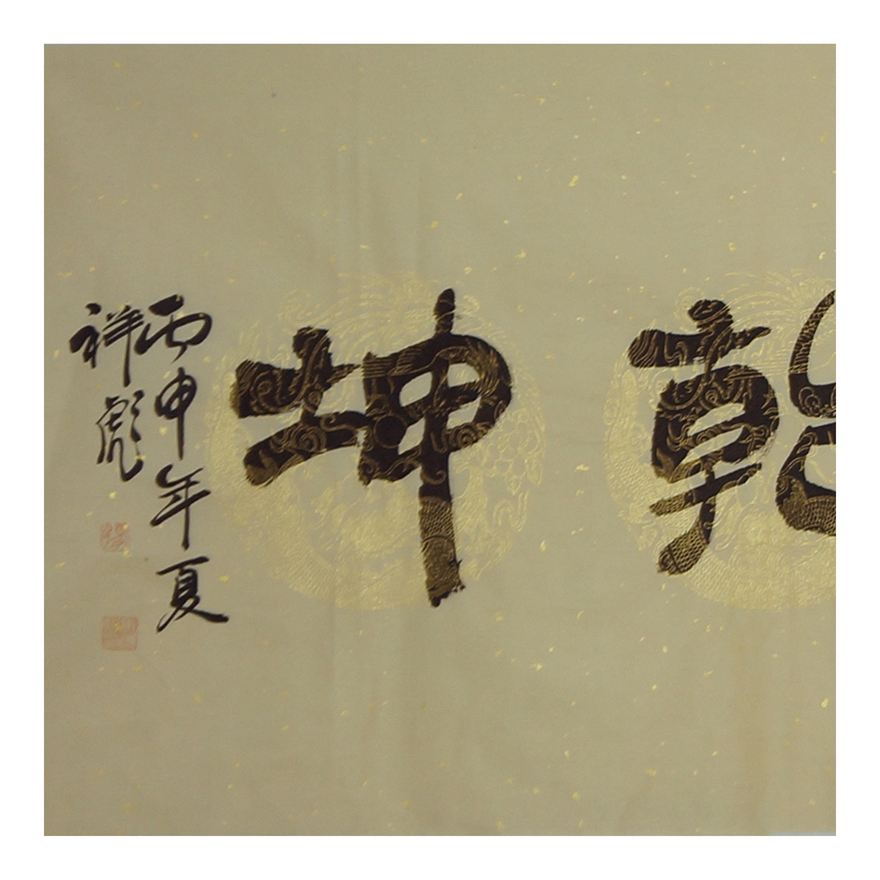 乾坤
丙申年夏
祥彪